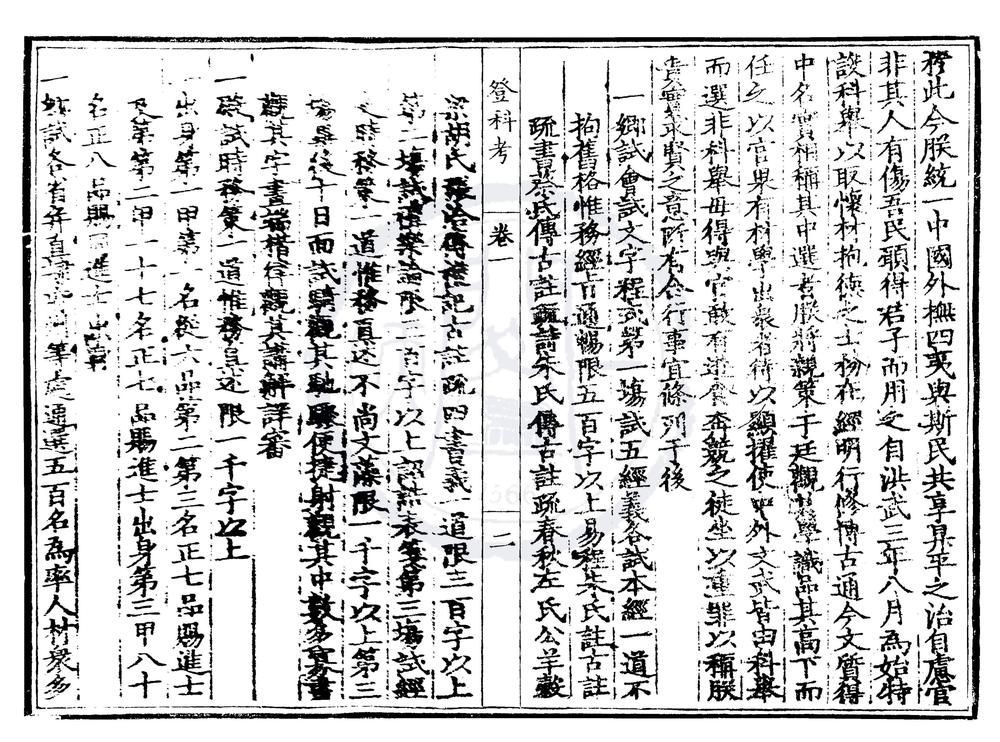 稔此今朕統一中國外撫四夷與斯民共享昇平之治自慮官
非其人有傷吾民願得君子而用之自洪武三年八月為始特
設科舉以取懷材抱德之士務在經明行修博古通今文質得
中名實相稱其中選者朕將親策于廷觀其學識品其高下而
任之以官果有材學出衆者待以顯擢使中外文武皆由科舉
而選非科舉毋得與官敢有遊食奔競之徒坐以重罪以稱朕
責實求賢之意所有合行事宜條列于後
一鄉試會試文字程式第一場試五經義各試本經一道不
拘舊格惟務經旨通暢限五百字以上易程朱氏註古註
疏書蔡氏傳古註疏詩朱氏傳古註疏春秋左氏公羊穀
登科考 卷一 二
宗胡氏張洽傳禮記古註疏四書義一道限三百字以上
第二場試禮樂論限三百字以上詔誥表箋第三場試經
史時務策一道惟務直述不尚文藻限一千字以上第三
場畢後十日而試騎觀其馳驟便捷射觀其中數多寡書
觀其字畫端楷律觀其講解詳審
一殿試時務策一道惟務直述限一千字以上
一出身第一甲第一名從六品第二第三名正七品賜進士
及第第二甲一十七名正七品賜進士出身第三甲八十
名正八品賜同進士出身
一鄉試各省并直隸 等處通選五百名為率人材衆多